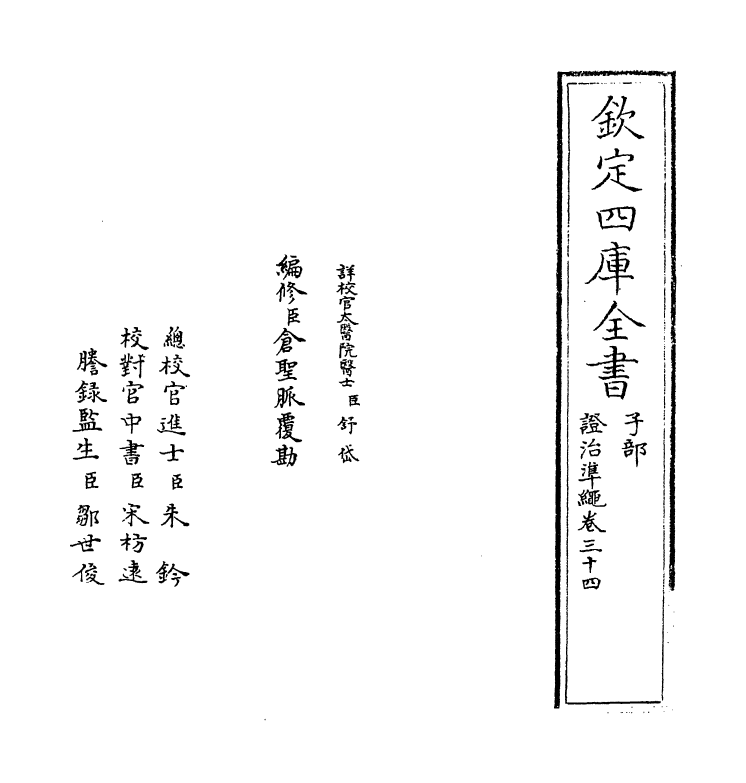 欽定四庫全書
子部
證治準繩卷三十四
詳校官太醫院醫士臣舒岱
編修臣倉聖脈覆勘
總校官進士臣朱鈐
校對官中書臣宋枋遠
謄録監生臣鄒世俊